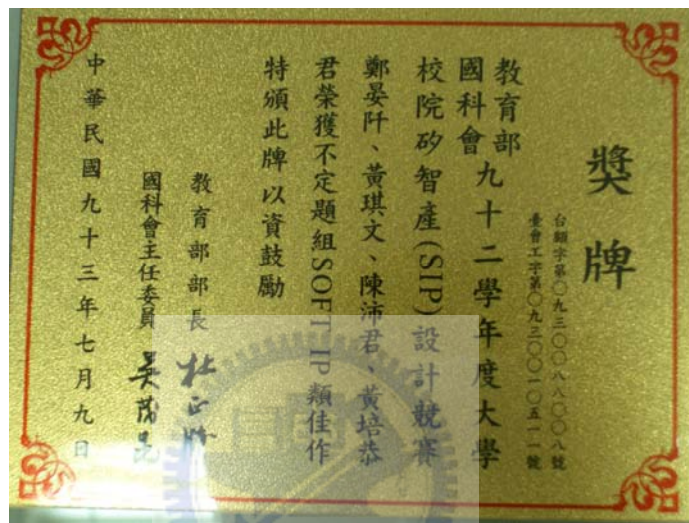 獎牌
台顧字第〇九三〇〇八八〇〇八號
臺會工字第〇九三〇〇一〇五一一號
教育部
國科會
九十二學年度大學
校院矽智產(SIP)設計競賽
鄭晏阡、黃琪文、陳沛君、黃培恭
君榮獲不定題組SOFT IP類佳作
特頒此牌以資鼓勵
教育部部長 杜正勝
國科會主任委員 吳茂昆
中華民國九十三年七月九日